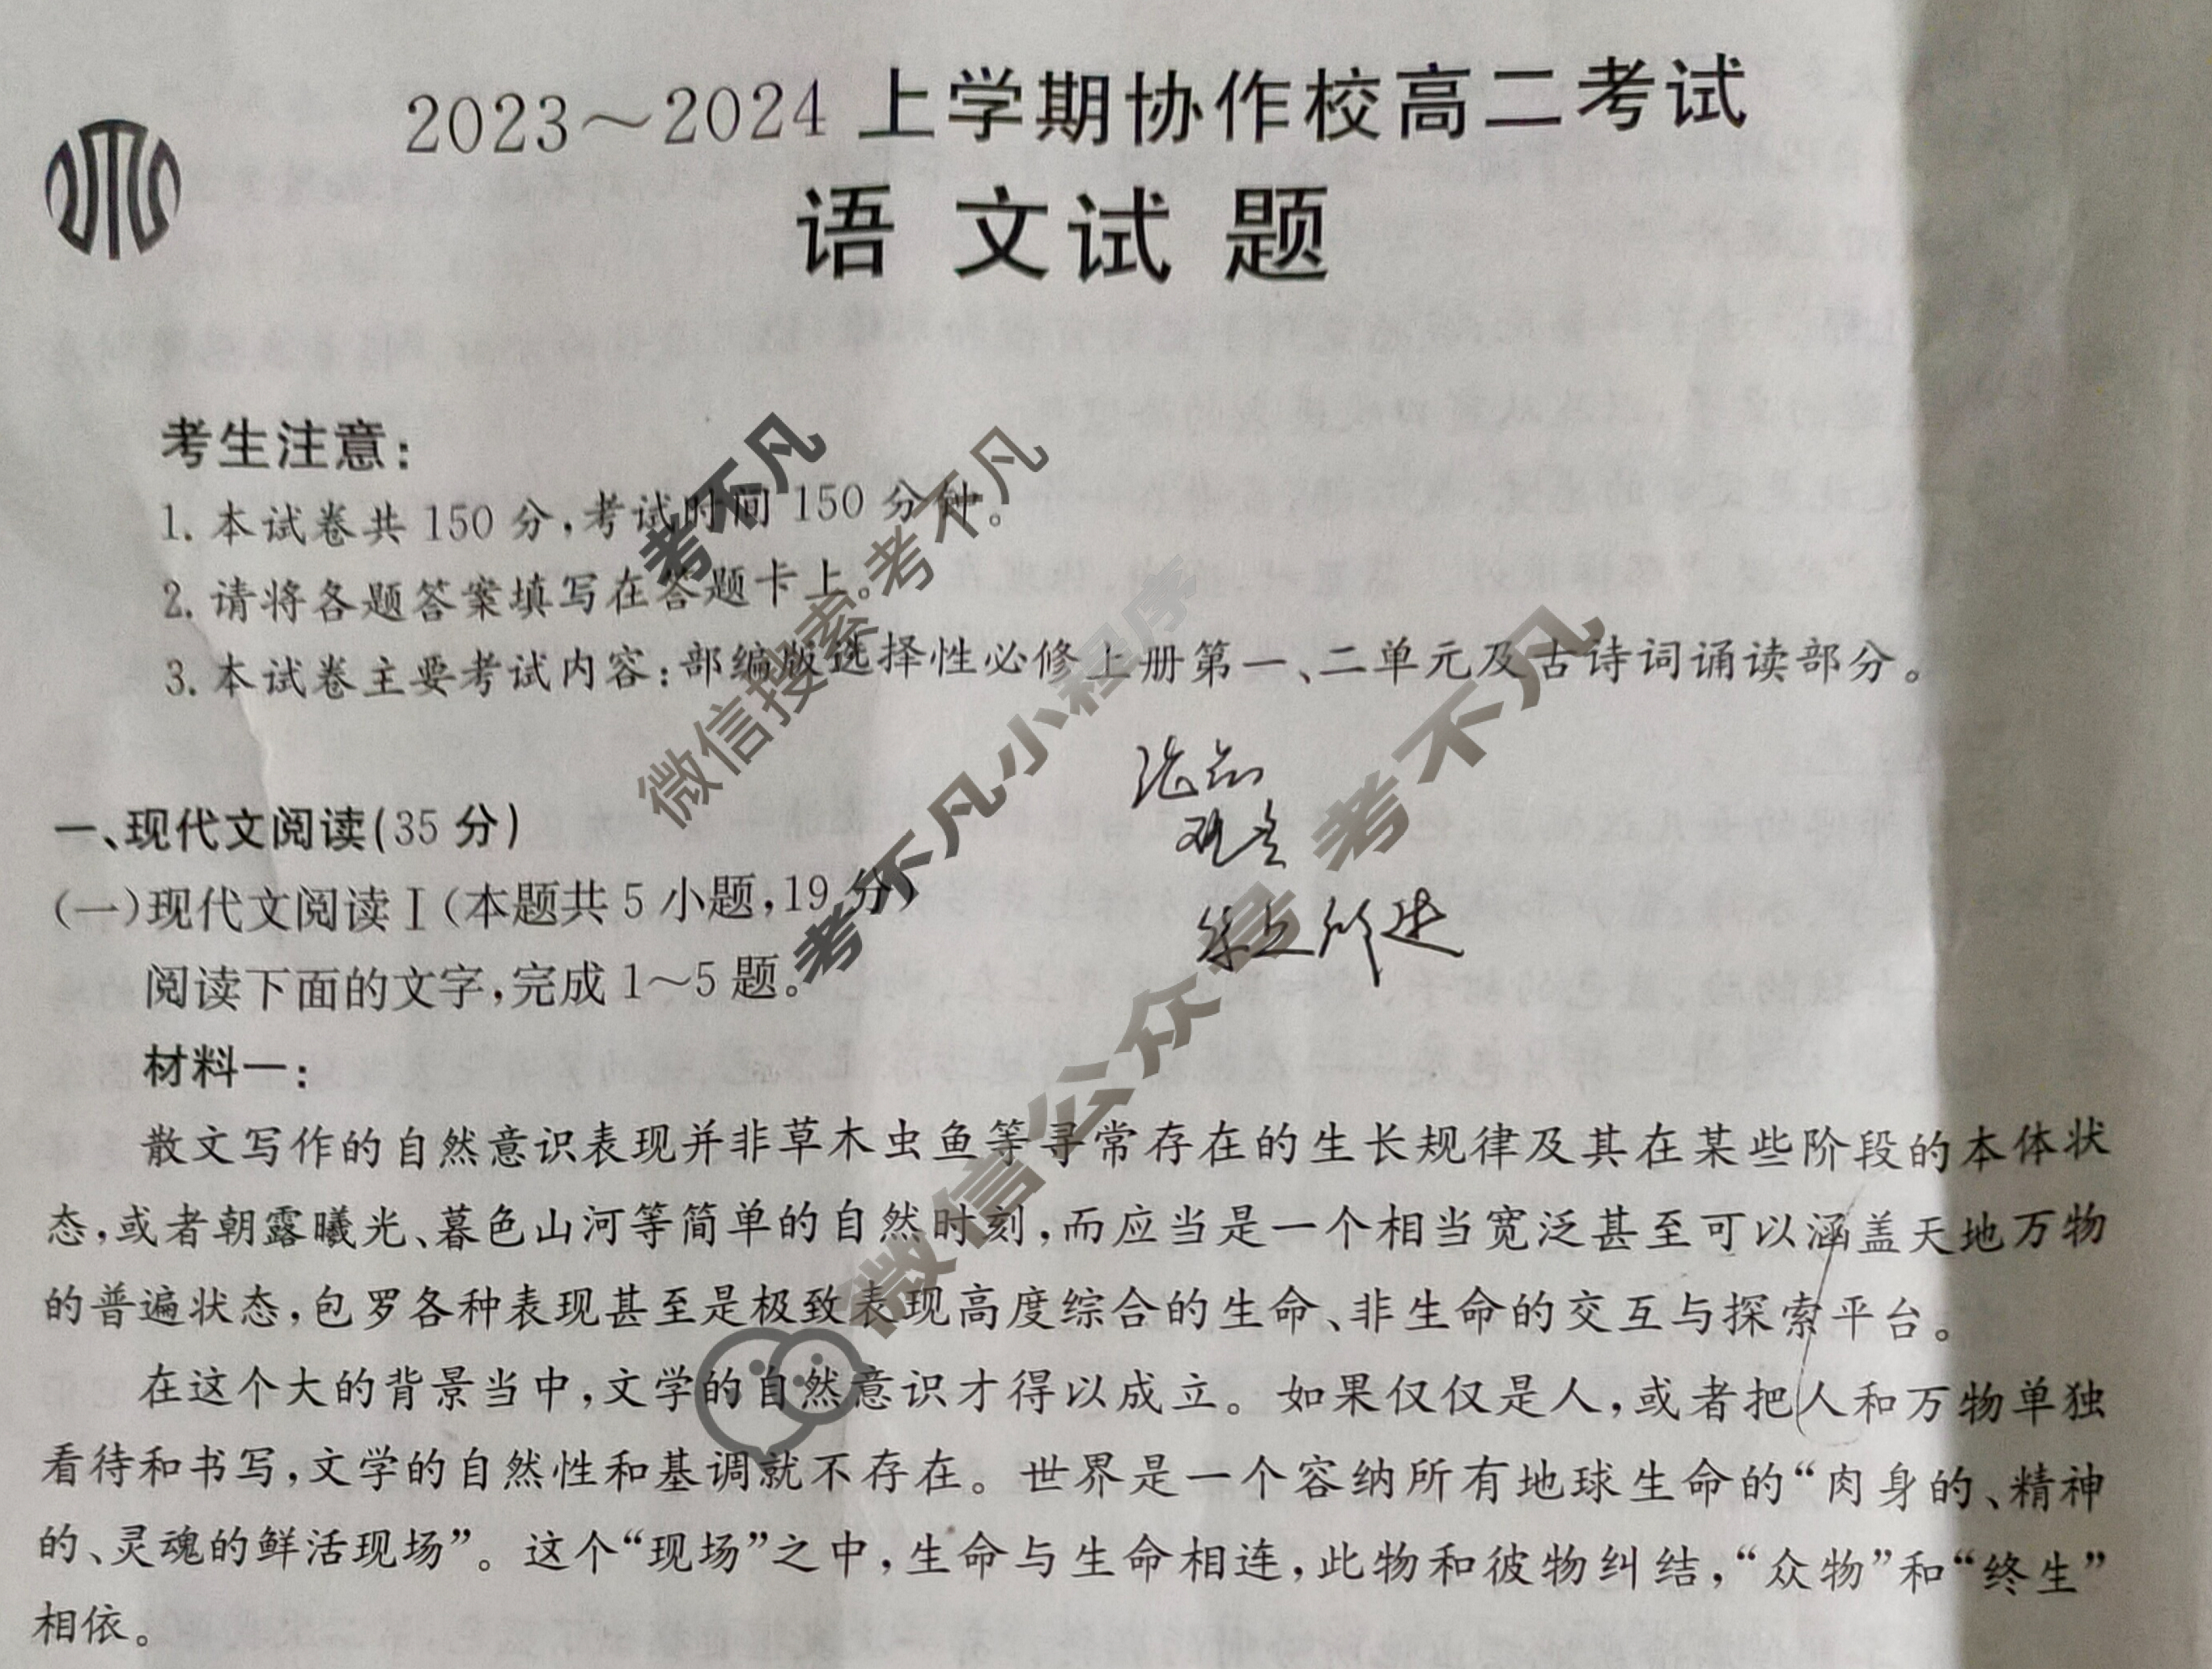 2023～2024 上学期协作校高二考试
语文试题
考生注意：
1. 本试卷共 150 分，考试时间 150 分钟。
2. 请将各题答案填写在答题卡上。
3. 本试卷主要考试内容：部编版选择性必修上册第一、二单元及古诗词诵读部分。
一、现代文阅读(35 分)
(一)现代文阅读Ⅰ(本题共 5 小题，19 分)
阅读下面的文字，完成 1～5 题。
材料一：
散文写作的自然意识表现并非草木虫鱼等寻常存在的生长规律及其在某些阶段的本体状
态，或者朝露曦光、暮色山河等简单的自然时刻，而应当是一个相当宽泛甚至可以涵盖天地万物
的普遍状态，包罗各种表现甚至是极致表现高度综合的生命、非生命的交互与探索平台。
在这个大的背景当中，文学的自然意识才得以成立。如果仅仅是人，或者把人和万物单独
看待和书写，文学的自然性和基调就不存在。世界是一个容纳所有地球生命的“肉身的、精神
的、灵魂的鲜活现场”。这个“现场”之中，生命与生命相连，此物和彼物纠结，“众物”和“终生”
相依。
考不凡
微信搜索 考不凡
考不凡小程序
微信公众号 考不凡